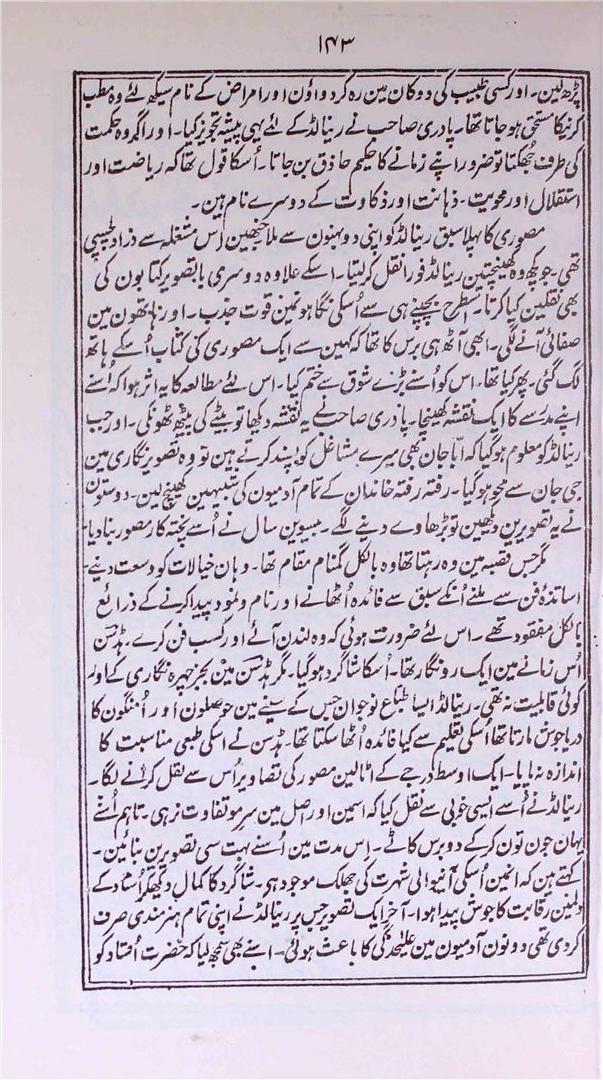 ۱۴۳
پڑھ لین۔ اور کسی طبیب کی دوکان مین رہ کر دواؤن اور امراض کے نام سیکھ لئے وہ مطب
کرنیکا مستحق ہو جاتا تھا۔ پادری صاحب نے رینالڈ کے لئے یہی پیشہ تجویز کیا۔ اور اگر وہ حکمت
کی طرف جُھکتا تو ضرور اپنے زمانے کا حکیم حاذق بن جاتا۔ اُسکا قول تھا کہ ریاضت اور
استقلال اور محویت۔ ذہانت اور ذکاوت کے دوسرے نام ہین۔
مصوری کا پہلا سبق رینالڈ کو اپنی دو بہنون سے ملا جنھین اس مشغلہ سے ذرا دلچسپی
تھی۔ جو کچھ وہ کھینچتین رینالڈ فوراً نقل کر لیتا۔ اسکے علاوہ دوسری باتصویر کتابون کی
بھی نقلین کیا کرتا۔ اسطرح بچپنے ہی سے اُسکی نگاہونمین قوت جذب۔ اور ہاتھون مین
صفائی آنے لگی۔ ابھی آٹھ ہی برس کا تھا کہ کہین سے ایک مصوری کی کتاب اُسکے ہاتھ
لگ گئی۔ پھر کیا تھا۔ اس کو اُسنے بڑے شوق سے ختم کیا۔ اس لئے مطالعہ کا یہ اثر ہوا کہ اُسنے
اپنے مدرسے کا ایک نقشہ کھینچا۔ پادری صاحب نے یہ نقشہ دیکھا تو بیٹے کی پیٹھ ٹھونکی۔ اور جب
رینالڈ کو معلوم ہو گیا کہ ابّا جان بھی میرے مشاغل کو پسند کرتے ہین تو وہ تصویر نگاری مین
جی جان سے محو ہو گیا۔ رفتہ رفتہ خاندان کے تمام آدمیون کی شبیہین کھینچ لین۔ دوستون
نے یہ تصویرین دیکھین تو بڑھاوے دینے لگے۔ بیسوین سال نے اُسے پختہ کار مصور بنا دیا۔
مگر جس قصبہ مین وہ رہتا تھا وہ بالکل گمنام مقام تھا۔ وہان خیالات کو وسعت دینے
اساتذۂ فن سے ملنے اُنکے سبق سے فائدہ اُٹھانے اور نام و نمود پیدا کرنے کے ذرائع
بالکل مفقود تھے۔ اس لئے ضرورت ہوئی کہ وہ لندن آئے اور کسب فن کرے۔ ہڈسن
اُس زمانے مین ایک رونگار تھا۔ اُسکا شاگرد ہو گیا۔ مگر ہڈسن مین بجز چہرہ نگاری کے اور
کوئی قابلیت نہ تھی۔ رینالڈ ایسا طبّاع نوجوان جس کے سینے مین حوصلون اور اُمنگون کا
دریا جوش مارتا تھا اُسکی تعلیم سے کیا فائدہ اُٹھا سکتا تھا۔ ہڈسن نے اسکی طبعی مناسبت کا
اندازہ نہ پایا۔ ایک اوسط درجے کے اٹالین مصور کی تصاویر اُس سے نقل کرانے لگا۔
رینالڈ نے اُسے ایسی خوبی سے نقل کیا کہ اسمین اور اصل مین سرِ مو تفاوت نہ رہی۔ تاہم اُسنے
یہان جون تون کر کے دو برس کاٹے۔ اس مدت مین اُسنے بہت سی تصویرین بنائین۔
کہتے ہین کہ انمین اُسکی آنیوالی شہرت کی جھلک موجود ہی۔ شاگرد کا کمال دیکھکر اُستاد کے
دلمین رقابت کا جوش پیدا ہوا۔ آخر ایک تصویر جس پر رینالڈ نے اپنی تمام ہنرمندی صرف
کر دی تھی دونون آدمیون مین علیٰحدگی کا باعث ہوئی۔ اسنے بھی سمجھ لیا کہ حضرت اُستاد کو